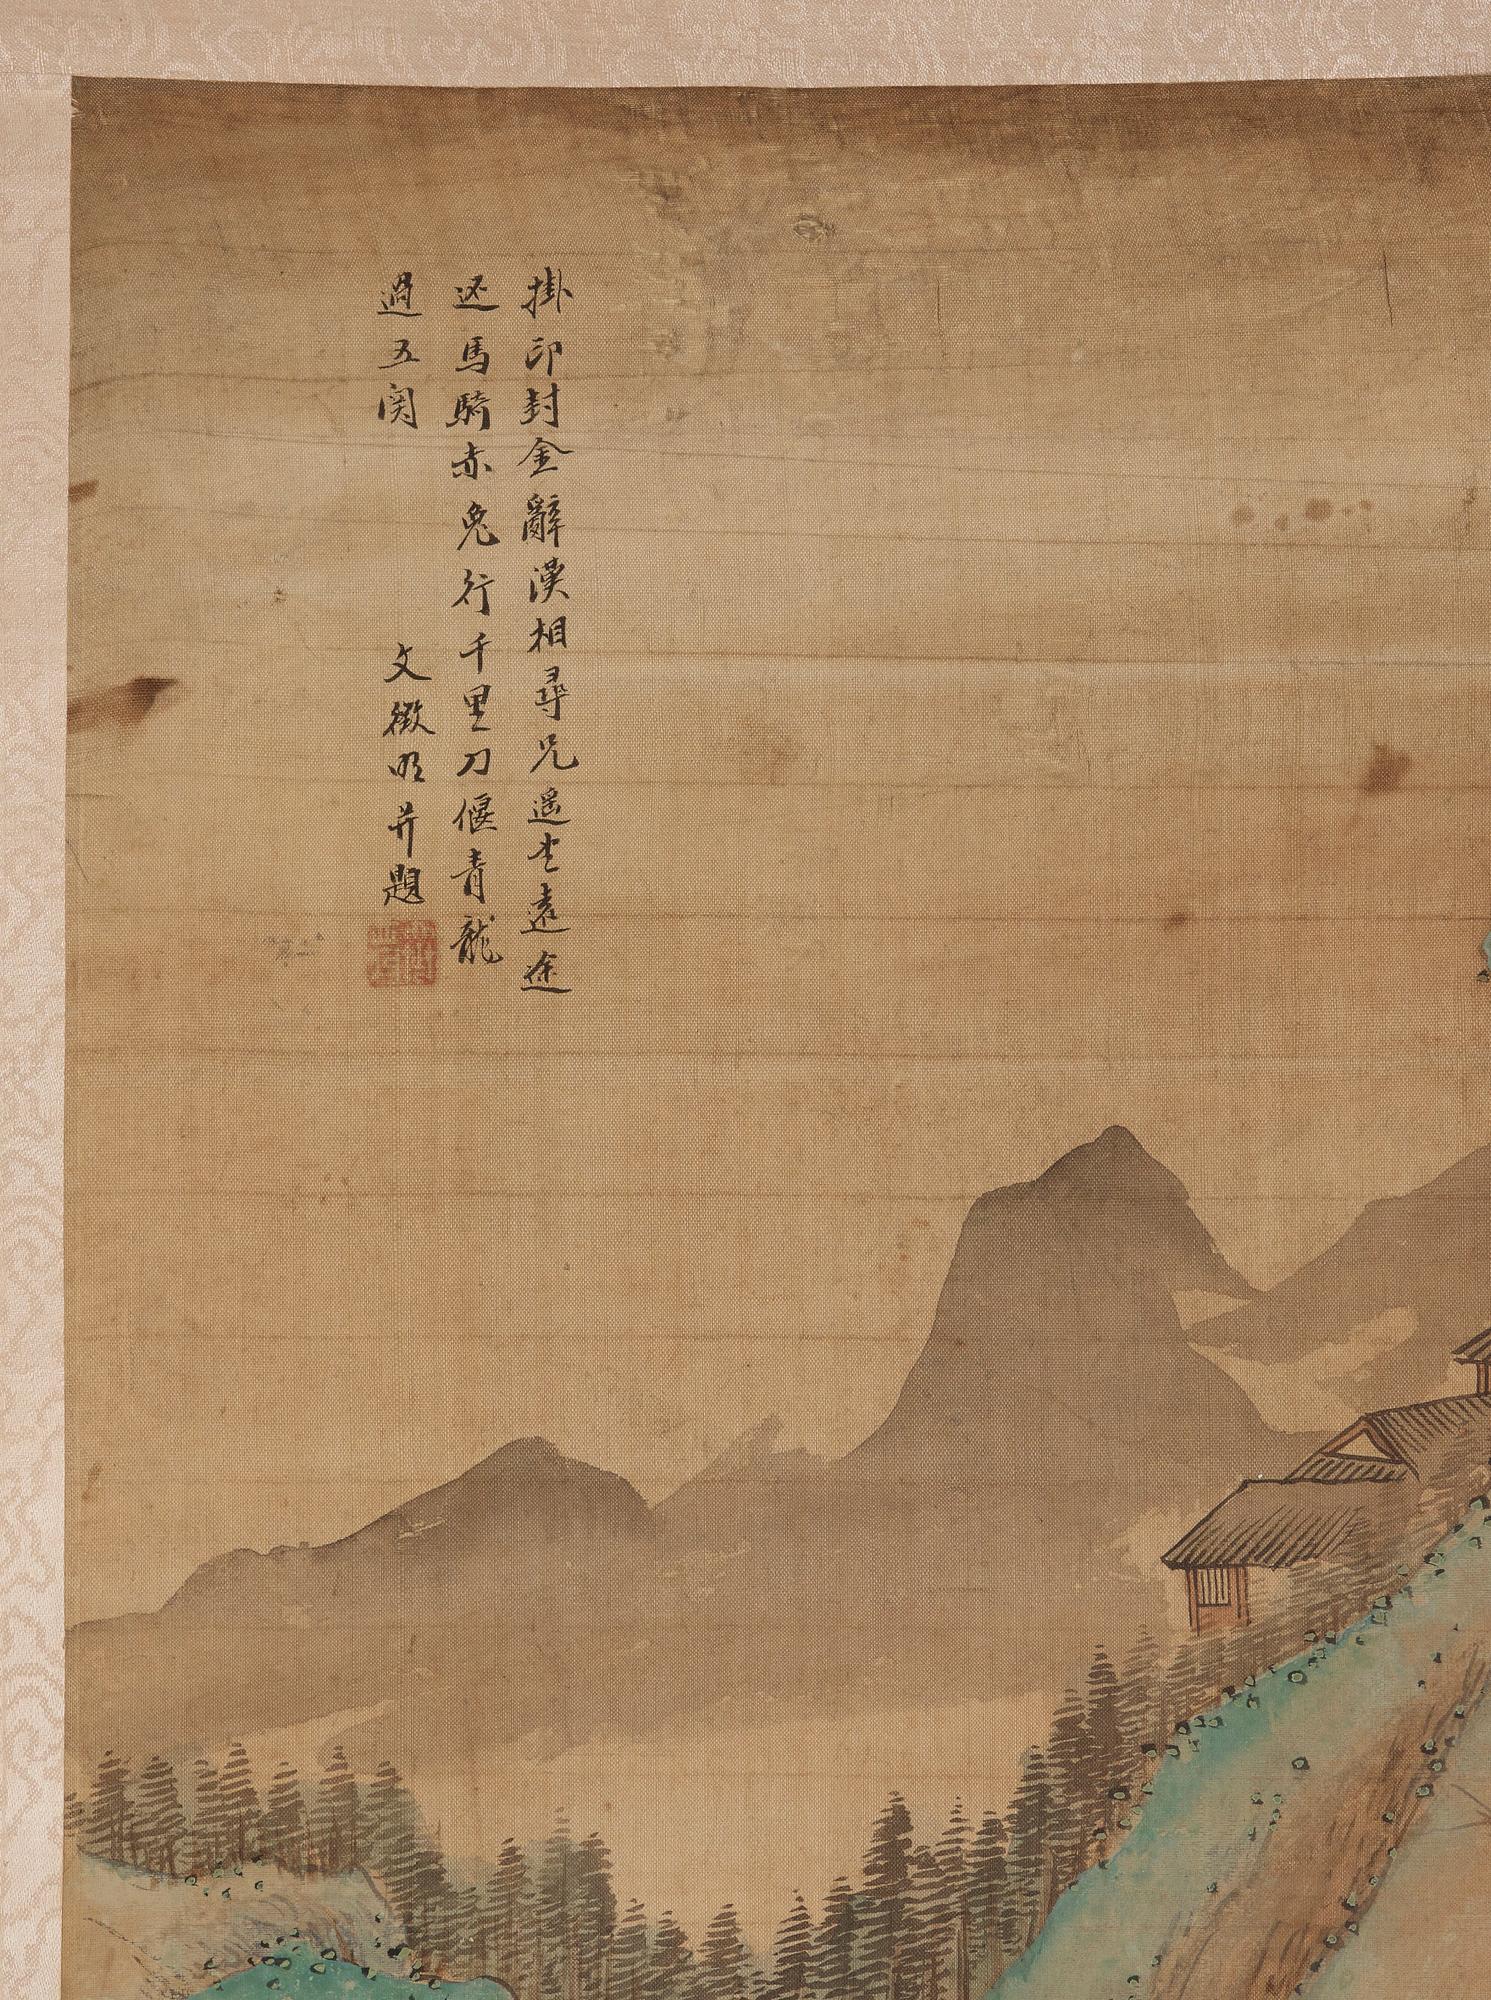 掛印封金辭漢相尋兄遥望遠途
还馬騎赤兔行千里刀偃青龍
過五関
文徵明并題